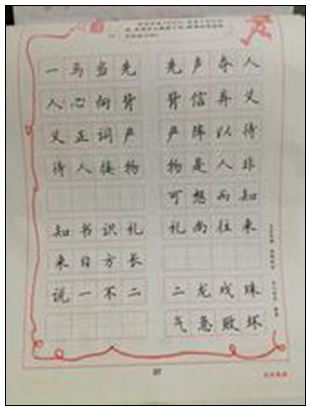 一马当先 先声夺人
人心向背 背信弃义
义正词严 严阵以待
待人接物 物是人非
可想而知
知书识礼 礼尚往来
来日方长
说一不二 二龙戏珠
气急败坏